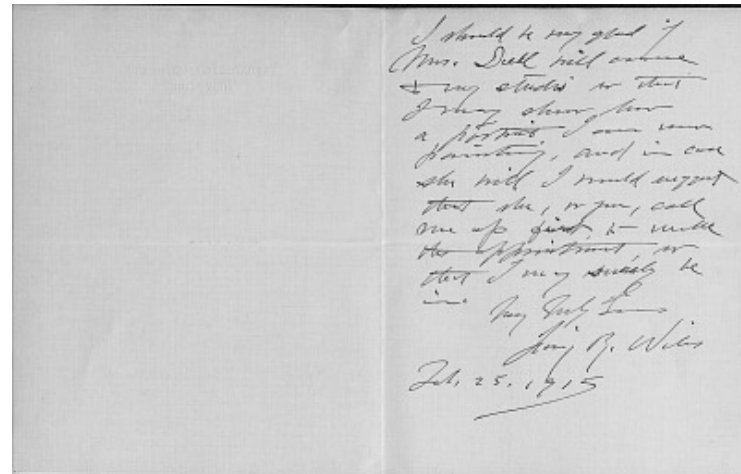 I should be very glad if
Mrs. Dell will come
to my studio so that
I may show her
a portrait I am now
painting, and in case
she will I would suggest
that she, or you, call
me up first, to make
the appointment, so
that I may surely be
in.
Very truly yours
Irving R. Wiles
Feb. 25. 1915